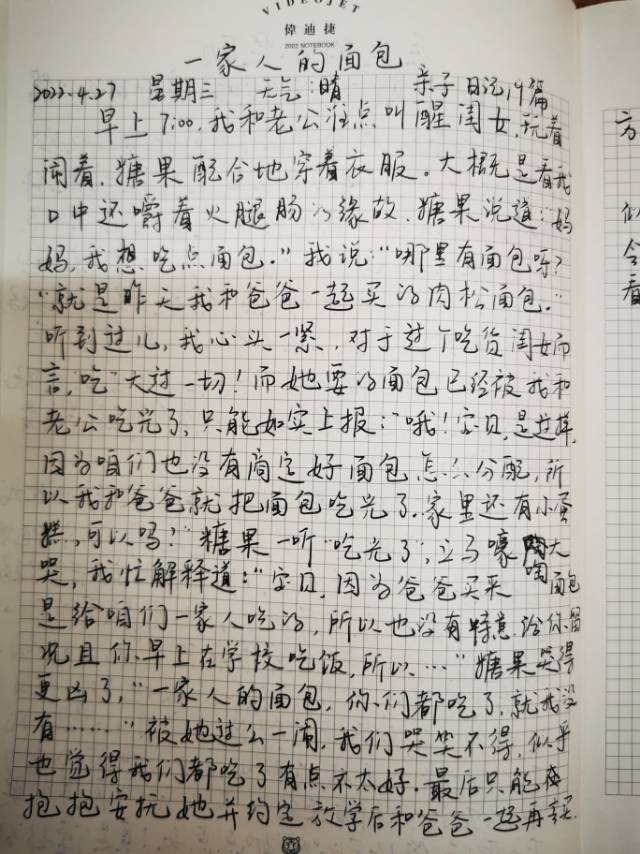 VIDEOJET
偉迪捷
2022 NOTEBOOK
一家人的面包
2022.4.27 星期三 天气:晴 亲子日记19篇
早上7:00,我和老公准点叫醒闺女,玩着
闹着,糖果配合地穿着衣服。大概是看我
口中还嚼着火腿肠的缘故,糖果说道:"妈
妈,我想吃点面包。"我说:"哪里有面包呀?
"就是昨天我和爸爸一起买的肉松面包。"
听到这儿,我心头一紧,对于这个吃货闺女而
言,"吃"大过一切!而她要的面包已经被我和
老公吃光了,只能如实上报:"哦!宝贝,是这样,
因为咱们也没有商定好面包怎么分配,所
以我和爸爸就把面包吃光了,家里还有小蛋
糕,可以吗?"糖果一听"吃光了",立马嚎啕大
哭,我忙解释道:"宝贝,因为爸爸买来面包
是给咱们一家人吃的,所以也没有特意给你留
况且你早上在学校吃饭,所以…"糖果哭得
更凶了,"一家人的面包,你们都吃了,就我没
有……"被她这么一闹,我们哭笑不得,似乎
也觉得我们都吃了有点不太好。最后只能
抱抱安抚她并约定放学后和爸爸一起再买
方
似
令
看